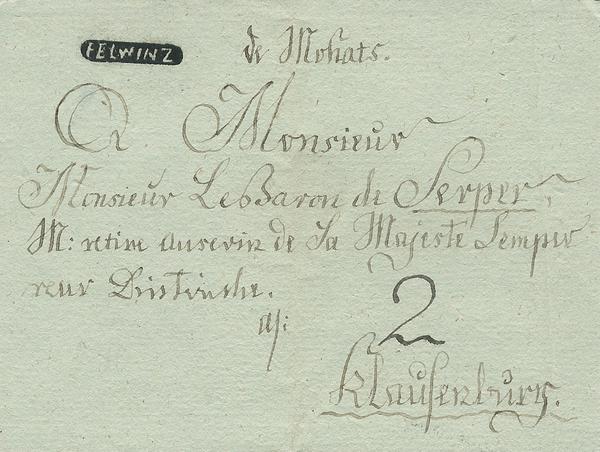 FELWINZ
de Mohats.
A Monsieur
Monsieur Le Baron de Serper,
M: retire au servix de Sa Majeste Lemper
reur
as:
2
Klausenburg.